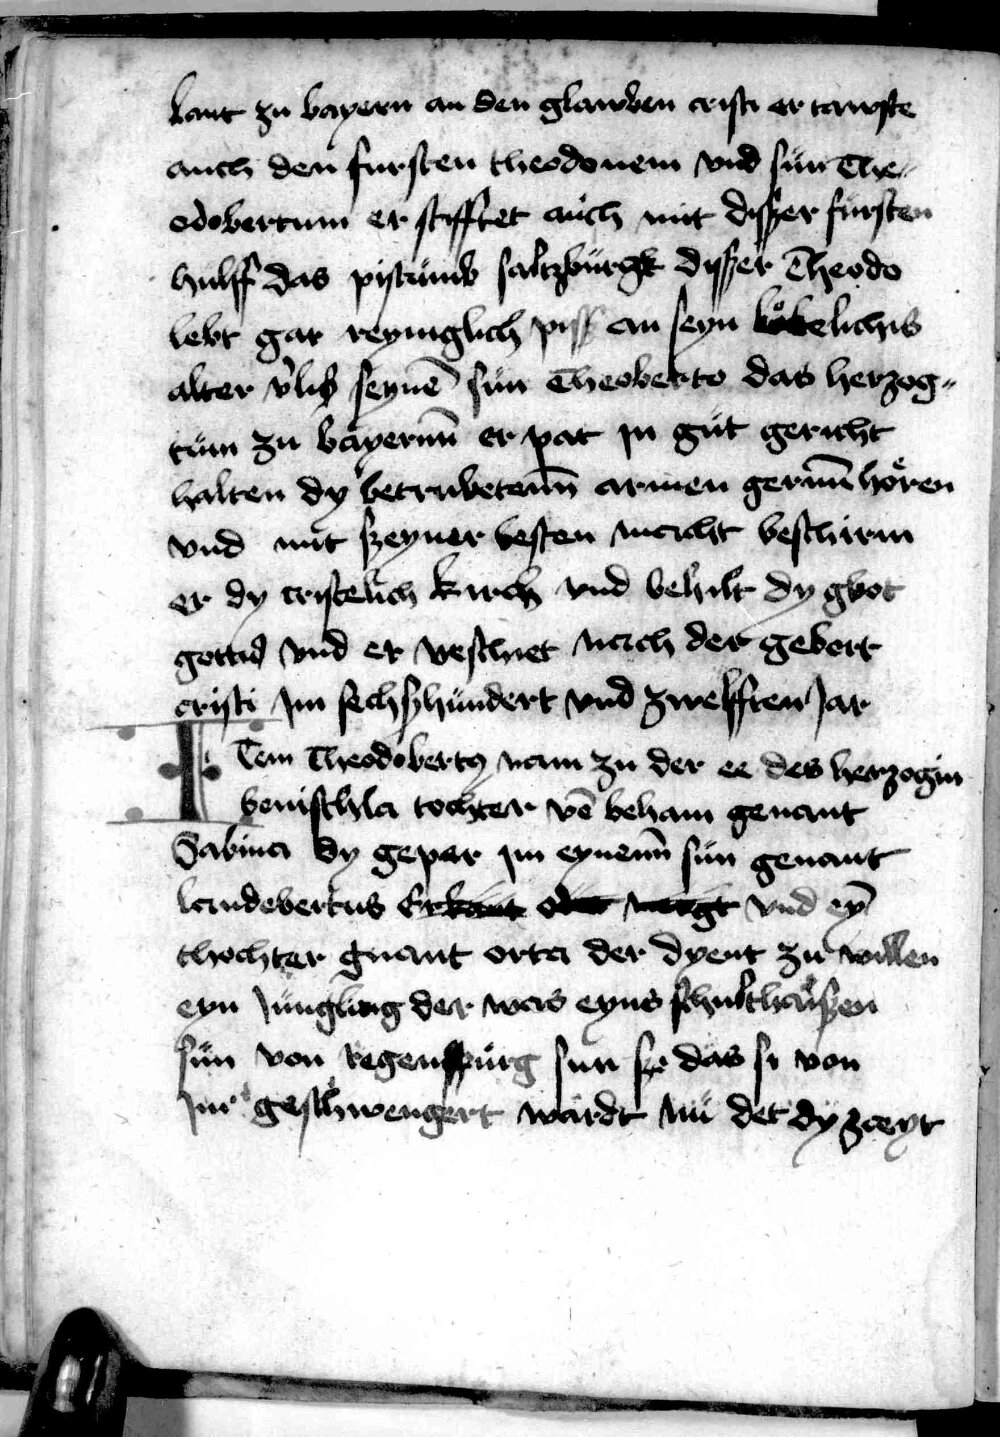 lant zu bayern an den glawben cristi er tawfte
auch den fursten theodonem vnd sün The-
odobertum er stifftet aüch mit diszer fürsten
hulff das pistümb saltzbürgk dyszer Theodo
lebt gar reyniglich pisz an seyn löbelichs
alter v'lisz seynē sün Theoberto das herzog-
tüm zu bayernn er pat in güt gericht
halten dy betrubetenn armen gernn hören
vnd mit szeyner vesten macht beschirm
er dy cristelich kirch vnd behilt dy gbot
gottis vnd er veschiet nach der gebort
cristi Im sechszhündert vnd zwelfften Jar
Item Theodobertus nam zu der ee des herzogin
tochter vō beham genant
Sabina dy gepar im eynenn sün genant
landebertus vnd eyn
thochter gnant orta der dyent zu willen
eyn Jüngling der was eyns schulthaiszen
sün von regenspürg sun sze das si von
im geschwengert wardt nü det dy zceyt